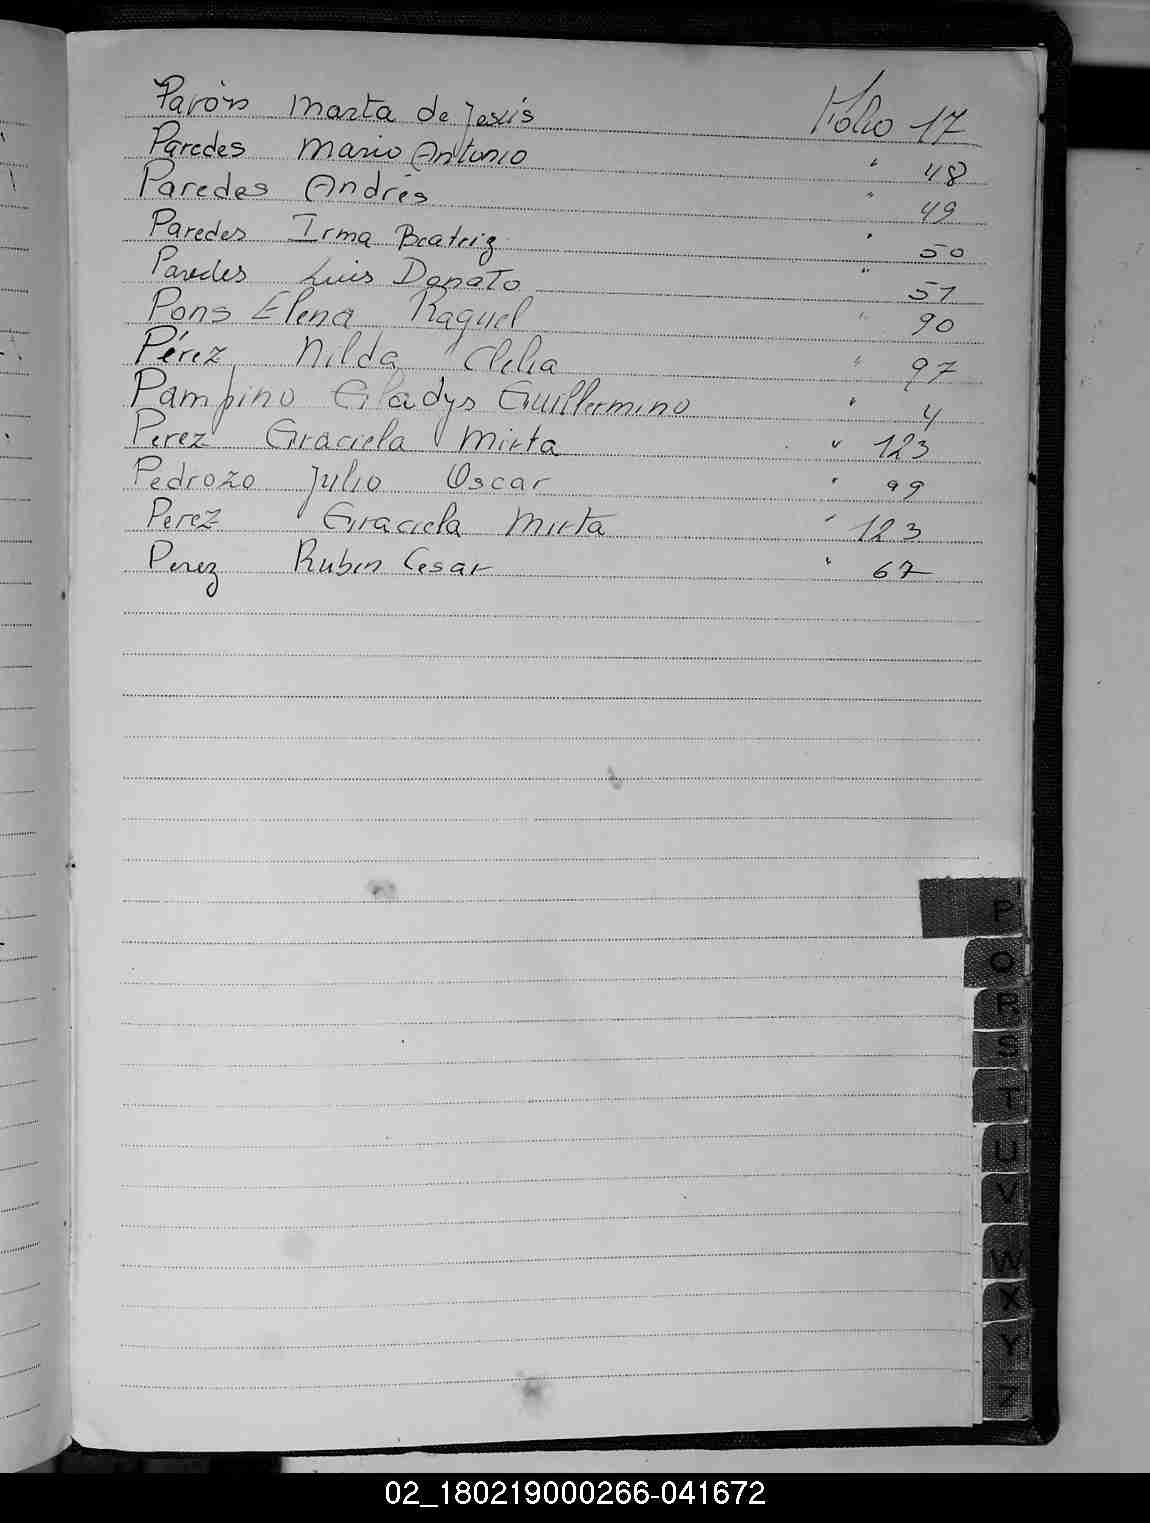 Pavón Marta de Jesús Folio 17
Paredes Mario Antonio " 48
Paredes Andrés " 49
Paredes Irma Beatriz " 50
Paredes Luis Donato " 51
Pons Elena Raquel " 90
Pérez Nilda Clelia " 97
Pampino Gladys Guillermino " 4
Perez Graciela Mirta " 123
Pedrozo Julio Oscar " 99
Perez Graciela Mirta " 123
Perez Ruben Cesar " 67
P
Q
R
S
T
U
V
W
X
Y
Z
02_180219000266-041672